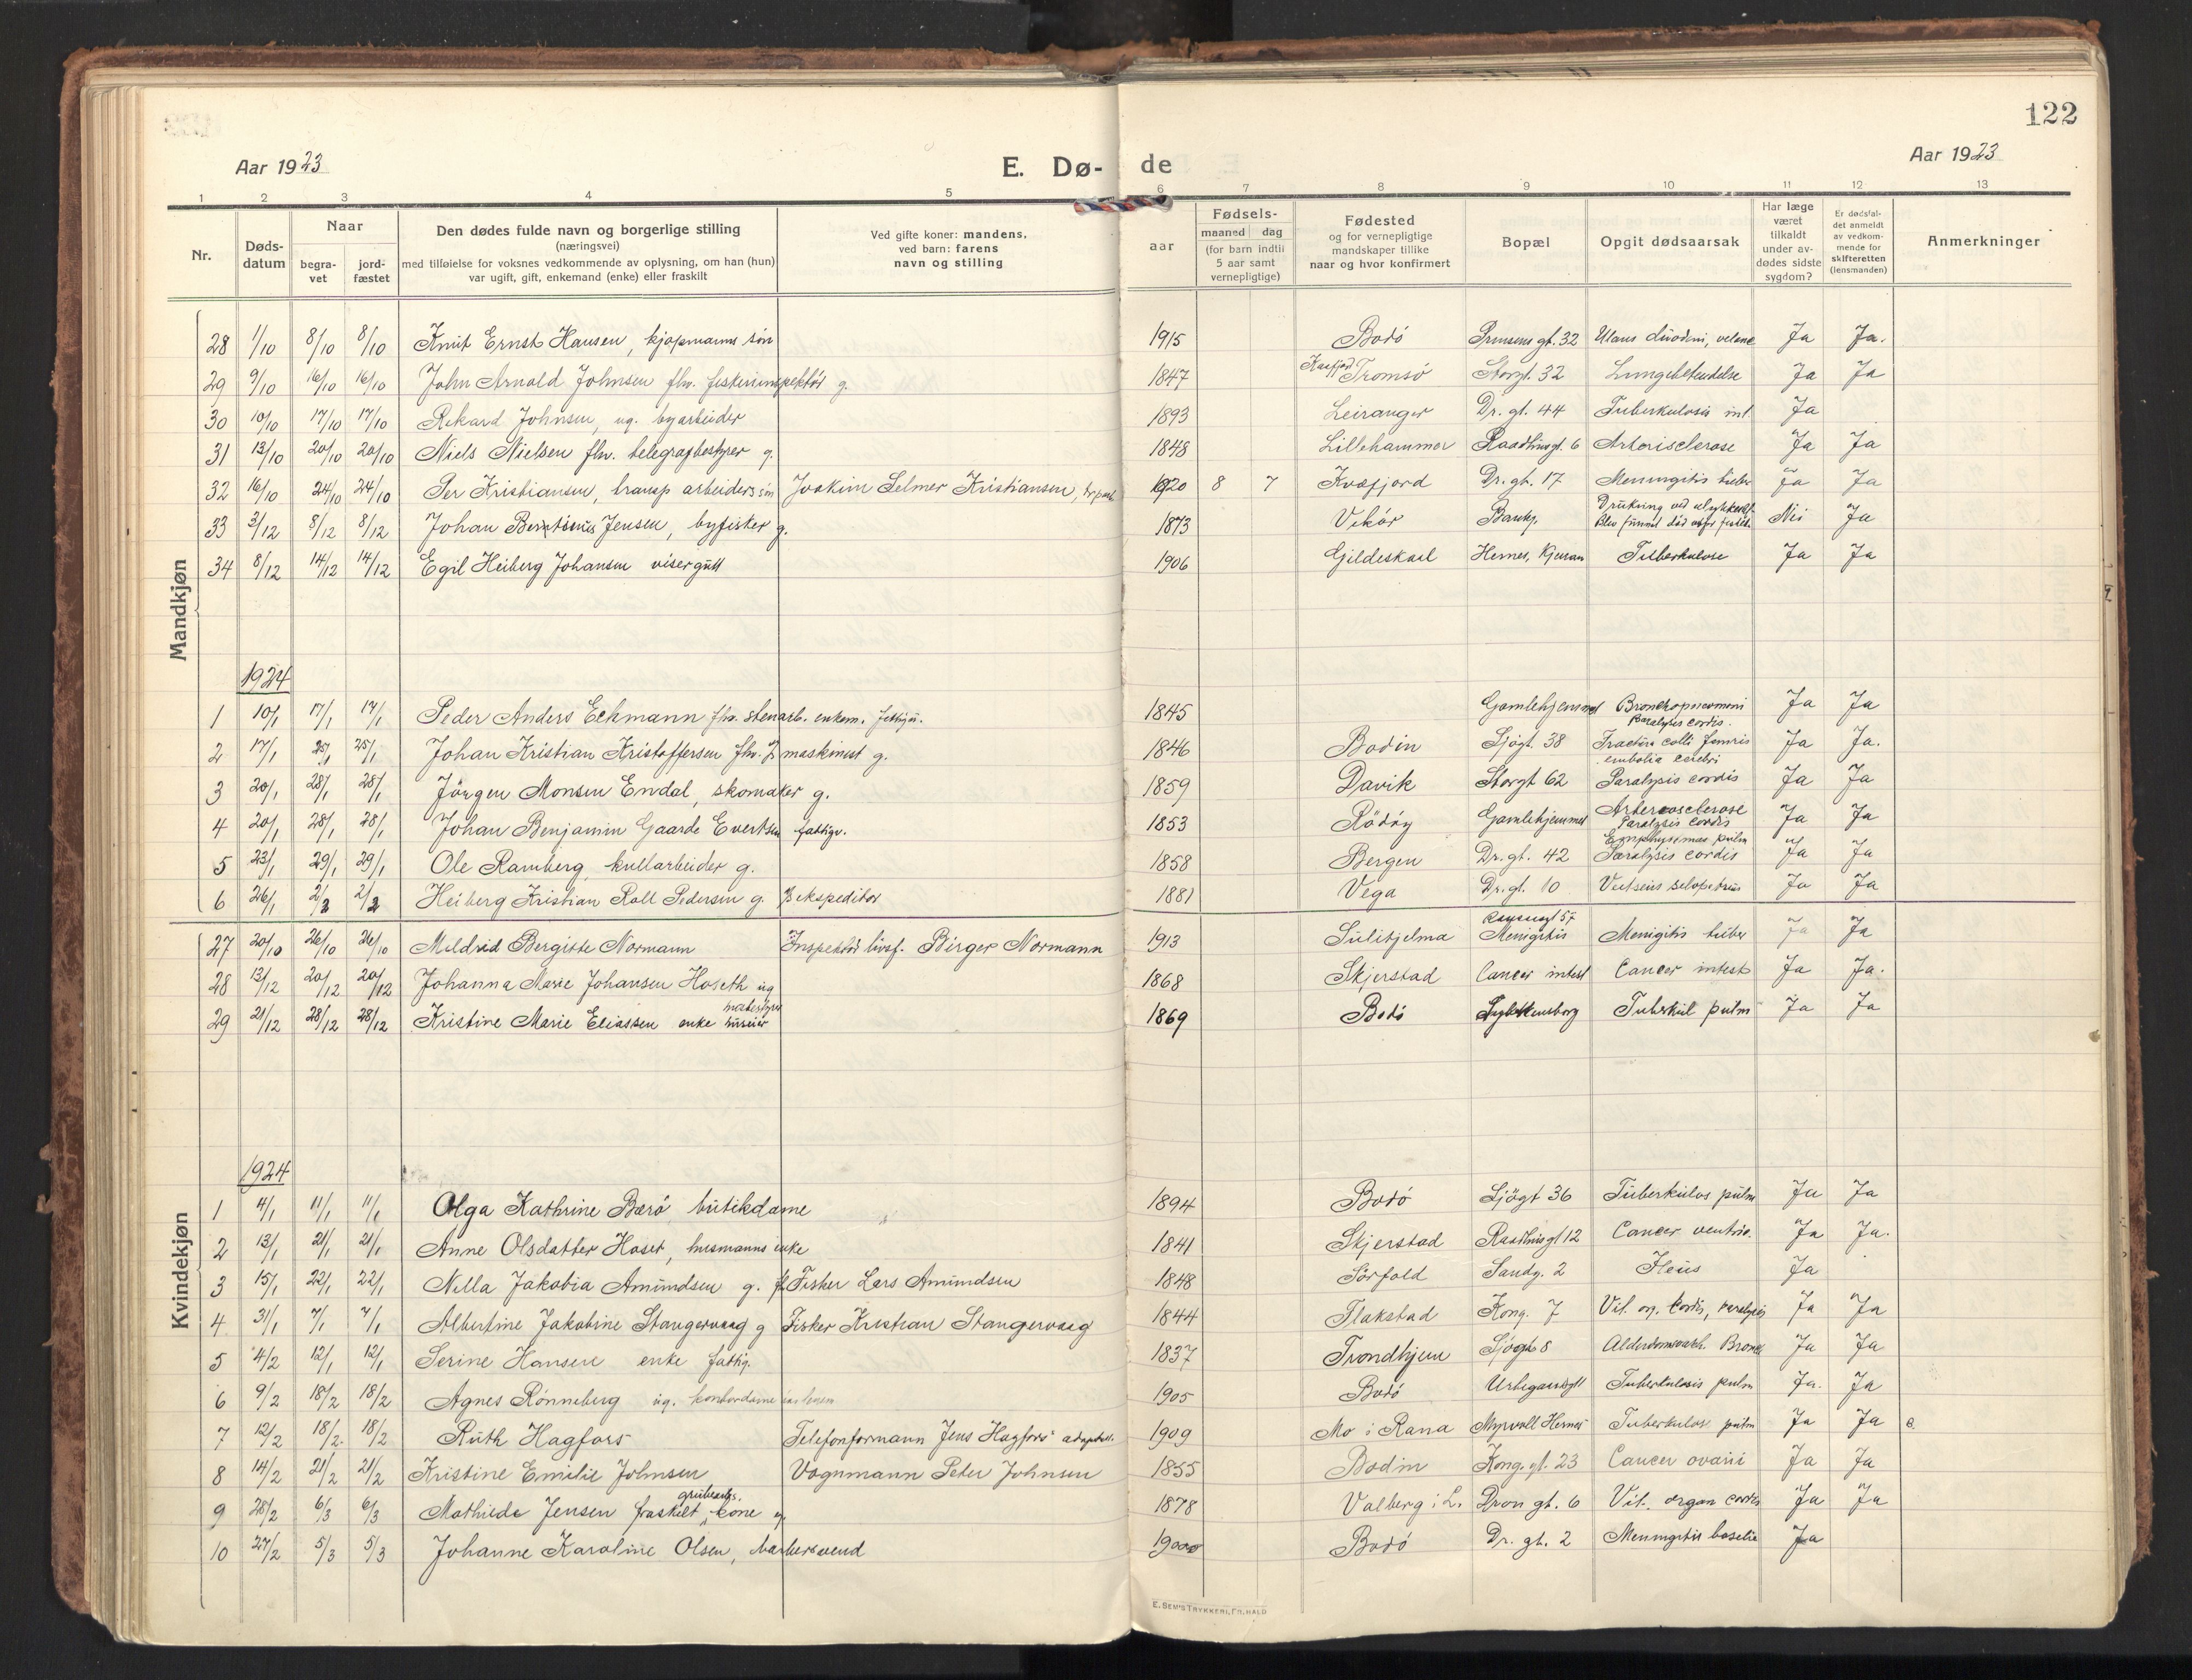 122
Aar 1923 E. Dø- de Aar 1923
1 2 3 4 5 6 7 8 9 10 11 12 13
Nr. Døds-datum Naar begra-vet jord-fæstet Den dødes fulde navn og borgerlige stilling (næringsvei) med tilføielse for voksnes vedkommende av oplysning, om han (hun) var ugift, gift, enkemand (enke) eller fraskilt Ved gifte koner: mandens, ved barn: farens navn og stilling aar Fødsels- maaned dag (for barn indtil 5 aar samt vernepligtige) Fødested og for vernepligtige mandskaper tillike naar og hvor konfirmert Bopæl Opgit dødsaarsak Har læge været tilkaldt under av-dødes sidste sygdom? Er dødsfal-det anmeldt av vedkom-mende for skifteretten (lensmanden) Anmerkninger
Mandkjøn
28 1/10 8/10 8/10 Knut Ernst Hansen, kjøpmanns søn 1915 Bodö Prinsens gt. 32 Ulcus duodeni, Ja Ja.
29 9/10 16/10 16/10 John Arnold Johnsen fhv. fiskeriinspektør g. 1847 Tromsö Storgt. 32 Lungebetendelse Ja Ja
30 10/10 17/10 17/10 Rikard Johnsen, ug. byarbeider 1893 Leiranger Dr. gt. 44 Tuberkulosis int. Ja
31 13/10 20/10 20/10 Niels Nielsen fhv. telegrafbestyrer g. 1848 Lillehammer Raadhusgt. 6 Arteriosclerose Ja Ja
32 16/10 24/10 24/10 Per Kristiansen, transp arbeiders søn Joakim Selmer Kristiansen, 1920 8 7 Kvæfjord Dr. gt. 17 Meningitis tuber Ja Ja
33 3/12 8/12 8/12 Johan Berntinus Jensen, byfisker g. 1873 Vikör Bankg. Drukning ved ulykkestilf. Blev funnet död Nei Ja
34 8/12 14/12 14/12 Egil Heiberg Johansen visergutt 1906 Gildeskaal Hernes, Tuberkulose Ja Ja
1924
1 10/1 17/1 17/1 Peder Anders Eckmann fhv. stenarb. enkem. 1845 Gamlehjemmet Bronchopneumoni Paralysis cordis. Ja Ja
2 17/1 25/1 25/1 Johan Kristian Kristoffersen fhv. maskinist g. 1846 Bodin Sjögt. 38 Fractura colli femoris embolia cerebri Ja Ja.
3 20/1 28/1 28/1 Jörgen Monsen Endal, skomaker g. 1859 Davik Storgt 62 Paralysis cordis Ja Ja
4 20/1 28/1 28/1 Johan Benjamin Gaarde Evertsen fattigv. 1853 Rödöy Gamlehjemmet Arteriosclerose Paralysis cordis Ja Ja
5 23/1 29/1 29/1 Ole Ramberg, kullarbeider g. 1858 Bergen Dr. gt. 42 Emphysemae pulm Paralysis cordis Ja Ja
6 26/1 2/2 2/2 Heiberg Kristian Roll Pedersen g. ekspeditør 1881 Vega Dr. gt. 10 Ja Ja
Kvindekjøn
27 20/10 26/10 26/10 Mildrid Bergitte Normann Inspektör livsf. Birger Normann 1913 Sulitjelma Menigitis Menigitis tuber Ja Ja
28 13/12 20/12 20/12 Johanna Marie Johansen Hoseth ug 1868 Skjerstad Cancer intest Cancer intest Ja Ja.
29 21/12 28/12 28/12 Kristine Marie Eliassen enke 1869 Bodö Lykkensborg Tuberkul pulm Ja Ja
1924
1 4/1 11/1 11/1 Olga Kathrine Bærö, butikdame 1894 Bodö Sjögt 36 Tuberkulos pulm Ja Ja
2 13/1 21/1 21/1 Anne Olsdatter Hoset, husmanns enke 1841 Skjerstad Raadhusgt 12 Cancer ventric. Ja Ja.
3 15/1 22/1 22/1 Nella Jakobia Amundsen g. Fisker Lars Amundsen 1848 Sörfold Sandg. 2 Ileus Ja
4 31/1 7/1 7/1 Albertine Jakobine Stangervaag g Fisker Kristian Stangervaag 1844 Flakstad Kong. 7 Vit. org. cordis, paralysis Ja Ja
5 4/2 12/1 12/1 Serine Hansen enke fattig. 1837 Trondhjem Sjögt 8 Ja Ja
6 9/2 18/2 18/2 Agnes Rønneberg ug. kontordame 1905 Bodö Tuberkulosis pulm Ja. Ja
7 12/2 18/2 18/2 Ruth Hagfors Telefonformann Jens Hagfors adoptivd. 1909 Mo i Rana Myrvoll Hernes Tuberkulos pulm Ja Ja
8 14/2 21/2 21/2 Kristine Emilie Johnsen Vognmann Peter Johnsen 1855 Bodin Kong. gt. 23 Cancer ovarii Ja Ja
9 28/2 6/3 6/3 Mathilde Jensen fraskilt, grubearb. kone 1878 Valberg i L. Dron gt. 6 Vit. organ cordis Ja Ja
10 27/2 5/3 5/3 Johanne Karoline Olsen, barbersvend 1900 Bodö Dr. gt. 2 Meningitis Ja
E. SEM'S TRYKKERI, FR.HALD